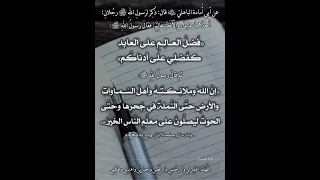 عن أبي أمامة الباهلي ﷺ قال: ذُكِرَ لرسول الله ﷺ رجلان:
أحدهما عابد والآخر عالم، فقال رسول الله ﷺ:
«فضل العالم على العابد
كفضلي على أدناكم»
ثم قال رسول الله ﷺ:
«إن الله وملائكته وأهل السماوات
والأرض حتى النملة في جحرها وحتى
الحوت ليصلون على معلم الناس الخير»